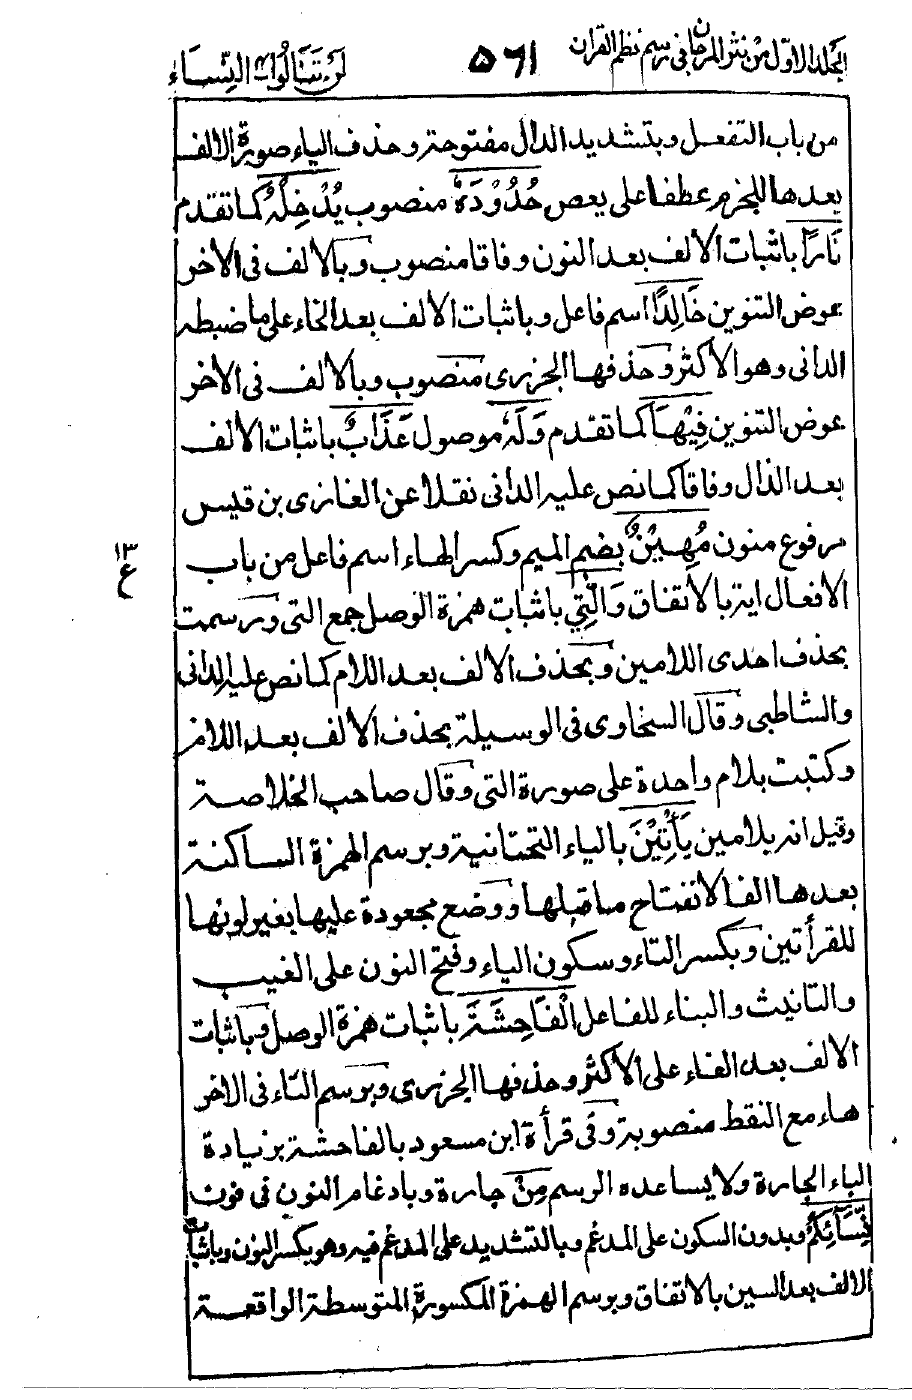 الجلد الاوّل من نثر المرجان فى رسم نظم القران ٥٦١ لن تنالوا۴ النِّسَاء
من باب التفعل وبتشديد الدال مفتوحة وحذف الياء صورة الالف
بعدها للجزم عطفا على يعص حُدُوْدَهٗ منصوب يُدْخِلْهُ كما تقدم
نَارًا باثبات الألف بعد النون وفاقا منصوب وبالالف فى الاخر
عوض التنوين خَالِدًا اسم فاعل وباثبات الألف بعد الخاء على ما ضبطه
الدانى وهو الأكثر وحذفها الجزرى منصوب وبالألف فى الاخر
عوض التنوين فِيْهَا كما تقدم وَلَهٗ موصول عَذَابٌ باثبات الالف
بعد الذال وفاقا كما نص عليه الدانى نقلا عن الغازى بن قيس
مرفوع منون مُهِيْنٌ بضم الميم وكسر الهاء اسم فاعل من باب
الافعال اية بالاتفاق وَالّٰتِي باثبات همزة الوصل جمع التى ورسمت
بحذف احدى اللامين وبحذف الألف بعد اللام كما نص عليه الدانى
والشاطبى وقال السخاوى فى الوسيلة بحذف الألف بعد اللام
وكتبت بلام واحدة على صورة التى وقال صاحب الخلاصة
وقيل انه بلامين يَأْتِيْنَ بالياء التحتانية وبرسم الهمزة الساكنة
بعدها الفا لانفتاح ما قبلها ووضع مجعودة عليها بغير لونها
للقرأتين وبكسر التاء وسكون الياء وفتح النون على الغيب
والتانيث والبناء للفاعل الْفَاحِشَةَ باثبات همزة الوصل وباثبات
الالف بعد الفاء على الأكثر وحذفها الجزرى وبرسم التاء فى الاخر
هاء مع النقط منصوبة وفى قرأة ابن مسعود بالفاحشة بزيادة
الباء الجارة ولا يساعده الرسم مِنْ جارة وبادغام النون فى نون
نِّسَآئِكُمْ وبدون السكون على المدغم وبالتشديد على المدغم فيه وهو بكسر النون وباثبات
الالف بعد السين بالاتفاق وبرسم الهمزة المكسورة المتوسطة الواقعة
١٣
ع